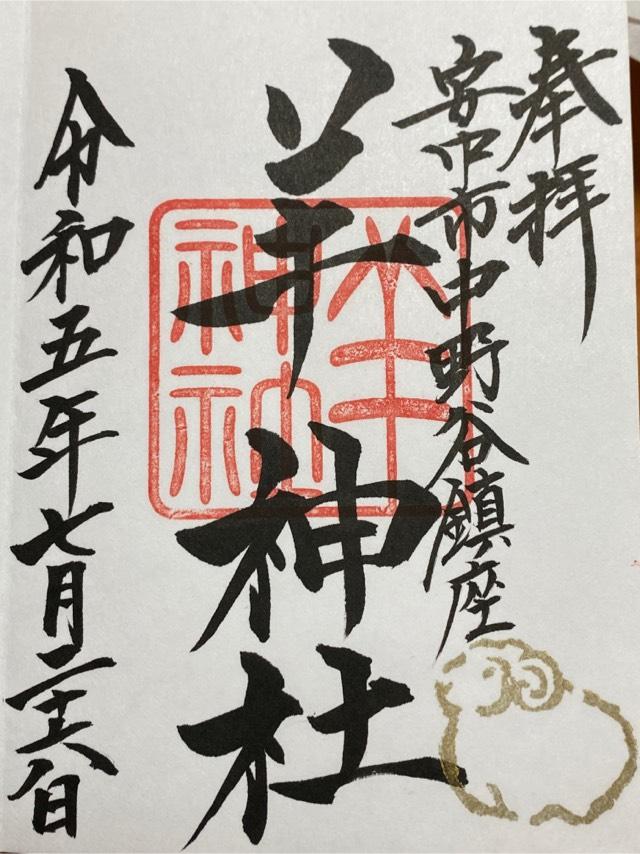 奉拝
安中市中野谷鎮座
羊神社
羊神社
令和五年七月二十六日